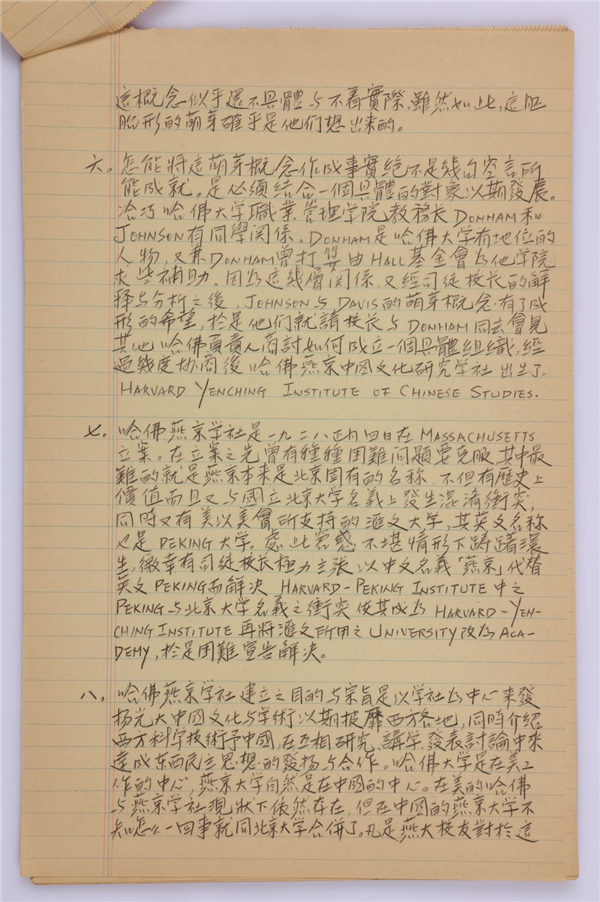 這概念似乎還不具體与不着實際.雖然如此,這胚
胎形的萌芽確乎是他们想出来的。
六。怎能將這萌芽概念作成事實絕不是幾句空言所
能成就。是必須結合一個具體的對象以期發展。
洽巧哈佛大学職業管理学院教務長DONHAM和
JOHNSON有同學関係。DONHAM是哈佛大学有地位的
人物,又兼DONHAM曾打算由HALL基金會為他学院
求些補助.因為這幾層関係.又經司徒校长的解
釋与分析之後,JOHNSON与DAVIS的萌芽概念.有了成
形的希望,於是他们就請校长与DONHAM同去會見
其他哈佛負責人商討如何成立一個具體組織,經
過幾度协商後哈佛燕京中國文化研究学社出生了.
HARVARD YENCHING INSTITUTE OF CHINESE STUDIES.
七.哈佛燕京学社是一九二八正月四日在MASSACHUSETTS
立案。在立案之先曾有種種困難问题要克服.其中最
難的就是燕京本来是北京固有的名称.不但有歷史上
價值而且又与國立北京大学名義上發生混淆衝突,
同時又有美以美會所支持的滙文大学,其英文名称
也是PEKING大学,處此窘惑不堪情形下踌躇滋
生,徼幸有司徒校长極力主张以中文名義「燕京」代替
英文PEKING而解決 HARVARD-PEKING INSTITUTE 中之
PEKING与北京大学名義之衝突使其成為 HARVARD-YEN-
CHING INSTITUTE 再將滙文所用之UNIVERSITY改為ACA-
DEMY,於是困難宣告解決。
八,哈佛燕京学社建立之目的与宗旨是以学社為中心来發
扬光大中國文化与学術以期披靡西方各地,同時介紹
西方科学技術予中國,在互相研究、講学、發表討論中来
達成东西民主思想的發扬与合作。哈佛大学是在美工
作的中心,燕京大学自然是在中國的中心。在美的哈佛
与燕京学社現狀下依然存在,但在中國的燕京大学不
知怎么一回事就同北京大学合併了。凡是燕大校友對於這